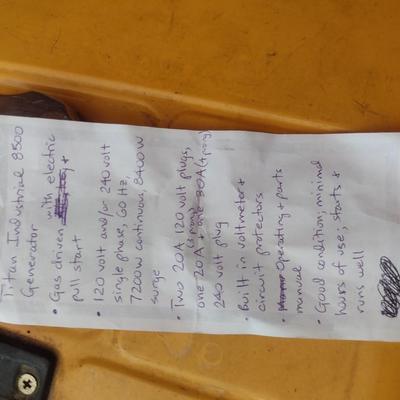 Titan Industrial 8500
Generator
• Gas driven with electric +
pull start
• 120 volt and/or 240 volt
single phase, 60 Hz,
7200W continuous, 8400W
surge
• Two 20A 120 volt plugs,
(3 prong)
one 20A + one 30A (4 prong)
240 volt plug
• Built in voltmeter +
circuit protectors
• Operating + parts
manual
• Good condition; minimal
hours of use; starts +
runs well